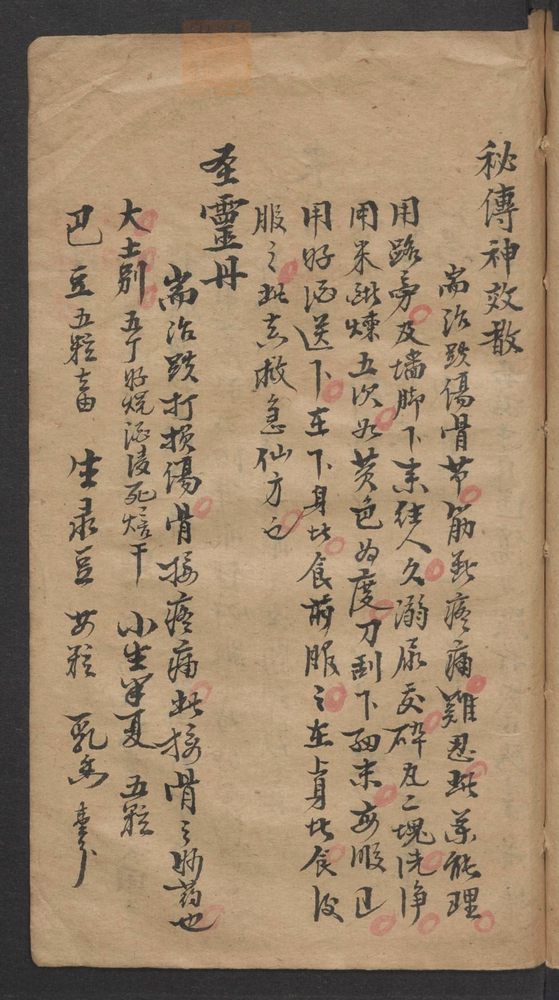 秘傳神效散
耑治跌傷骨节筋斷疼痛難忍此藥能理
用路旁及墻脚下来往人久溺尿處碎瓦二塊洗净
用米醋煉五次如黄色为度刀刮下細末每服
用好酒送下在下身者食前服之在上身者食後
服之此真救急仙方也
圣靈丹
耑治跌打损傷骨接疼痛此接骨之妙药也
大土别 五丁 好烧酒浸死焙干 小生半夏 五粒
巴豆五粒 生录豆 廿粒 乳香